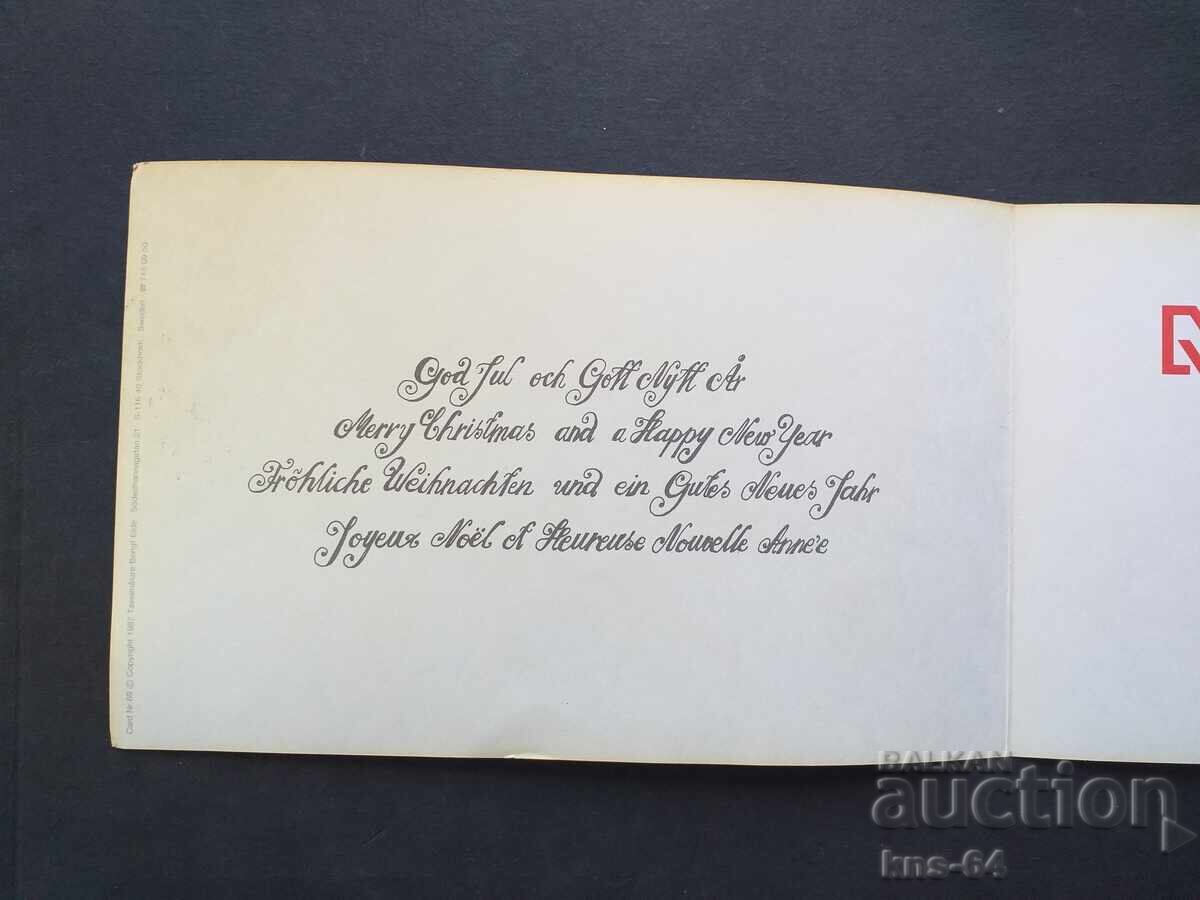 God Jul och Gott Nytt År
Merry Christmas and a Happy New Year
Fröhliche Weihnachten und ein Gutes Neues Jahr
Joyeux Noël et Heureuse Nouvelle Année
Card Nr 69 © Copyright 1987 Bengt S-116 40 Stockholm Sweden ☎
BALKAN
auction
kns-64